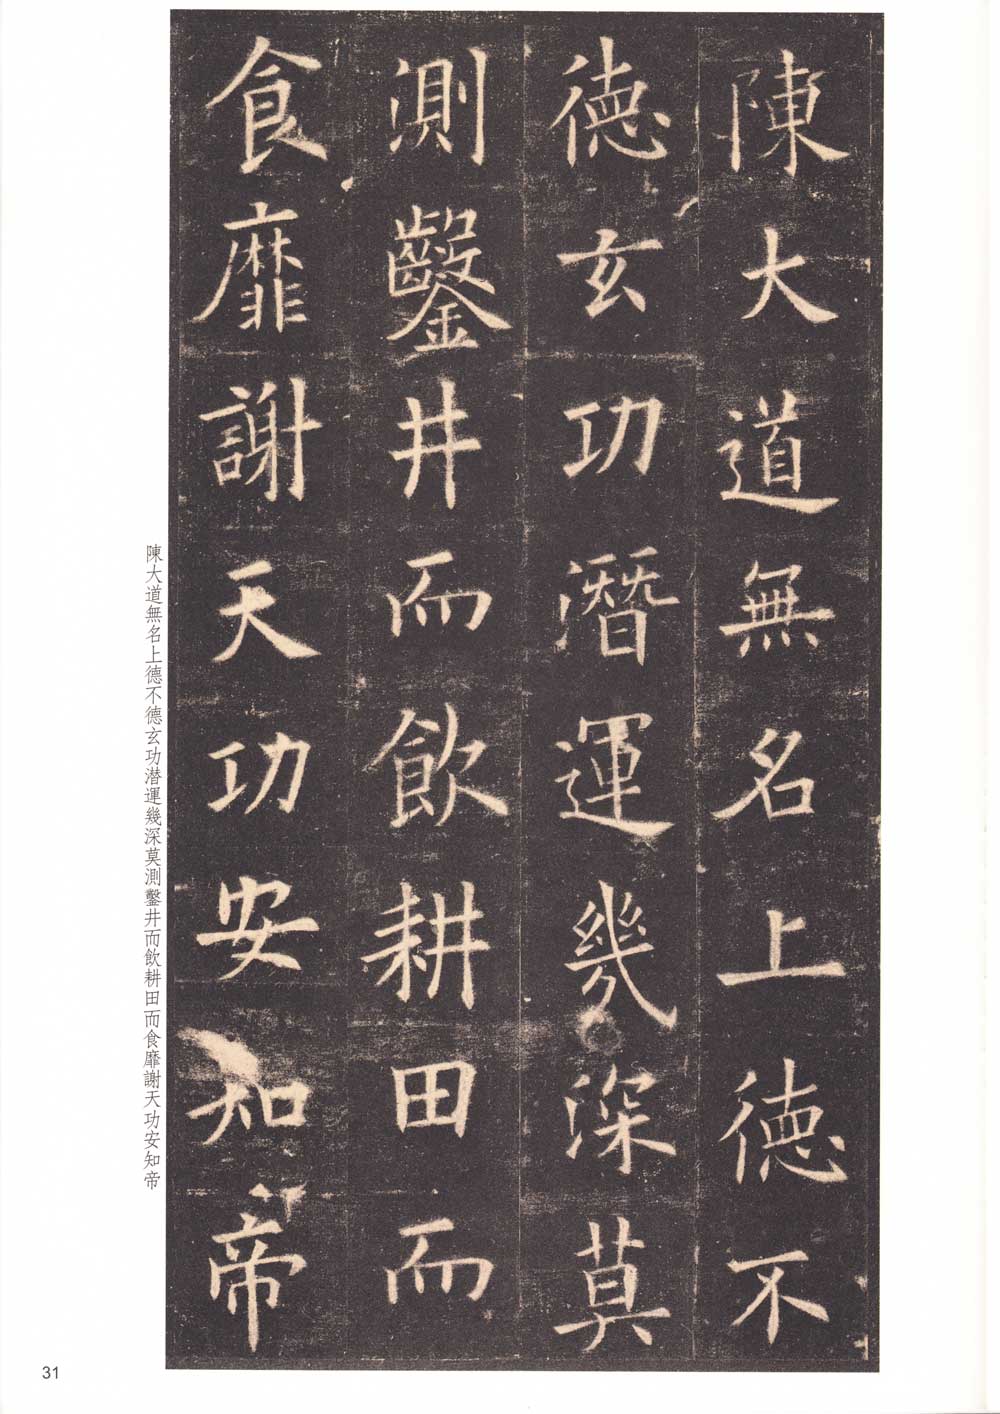 陳大道無名上德不
德玄功潛運幾深莫
測鑿井而飲耕田而
食靡謝天功安知帝
陳大道無名上德不德玄功潜運幾深莫測鑿井而飲耕田而食靡謝天功安知帝
31